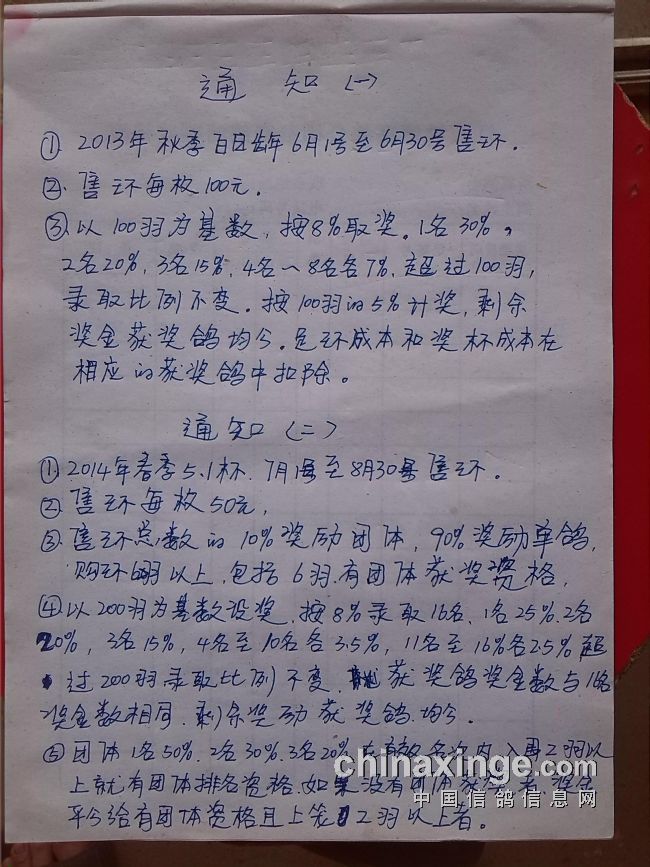 通 知 (一)
① 2013年秋季百日龄年6月1号至6月30号售环.
②. 售环每枚100元.
③. 以100羽为基数, 按8%取奖. 1名30%,
2名20%, 3名15%, 4名~8名各7%. 超过100羽,
录取比例不变. 按100羽的5%计奖, 剩余
奖金获奖鸽均分. 足环成本和奖杯成本在
相应的获奖鸽中扣除。
通 知 (二)
① 2014年春季5.1杯. 7月1号至8月30号售环.
② 售环每枚50元,
③. 售环总数的10%奖励团体, 90%奖励单鸽,
购环6羽以上, 包括6羽. 有团体获奖资格,
④ 以200羽为基数设奖. 按8%录取16名. 1名25%. 2名
20%, 3名15%, 4名至10名各3.5%, 11名至16%各2.5% 超
过200羽录取比例不变. 获奖鸽奖金数与16名
奖金数相同. 剩余奖励获奖鸽. 均分.
⑤ 团体1名50%. 2名30%. 3名20% 名次内入围2羽以
上就有团体排名资格. 如果没有团体获奖者. 奖金
平分给有团体资格且上笼2羽以上者。
chinaxinge.com
中国信鸽信息网